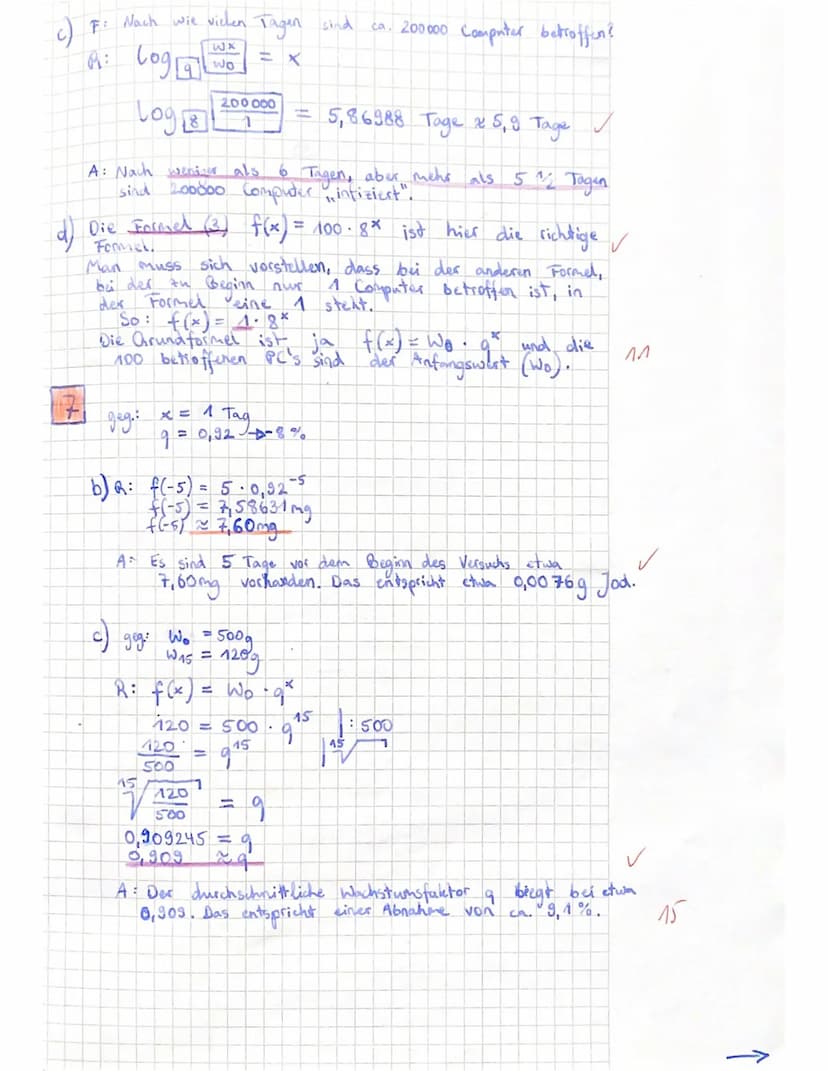 c) F: Nach wie vielen Tagen sind ca. 200 000 Computer betroffen?
R: log q Wx/W0 = x
log 8 200 000/1 = 5,86988 Tage ≈ 5,9 Tage ✓
A: Nach weniger als 6 Tagen, aber mehr als 5 1/2 Tagen
sind 200000 Computer „infiziert".
d) Die Formel (3) f(x) = 100 · 8^x ist hier die richtige ✓
Formel.
Man muss sich vorstellen, dass bei der anderen Formel,
bei der zu Beginn nur 1 Computer betroffen ist, in
der Formel eine 1 steht.
So: f(x) = 1 · 8^x
Die Grundformel ist ja f(x) = W0 · q^x und die
100 betroffenen PC's sind der Anfangswert (W0). 11
7
geg.: x = 1 Tag
q = 0,92 → -8 %
b) R: f(-5) = 5 · 0,92^-5
f(-5) = 7,58631 mg
f(-5) ≈ 7,60mg
A: Es sind 5 Tage vor dem Beginn des Versuchs etwa ✓
7,60mg vorhanden. Das entspricht etwa 0,0076g Jod.
c) geg: W0 = 500g
W15 = 120g
R: f(x) = W0 · q^x
120 = 500 · q^15 | : 500
120/500 = q^15 | 15√
15√120/500 = q
0,909245 = q
0,909 ≈ q ✓
A: Der durchschnittliche Wachstumsfaktor q liegt bei etwa
0,909. Das entspricht einer Abnahme von ca. 9,1 %. 15
→